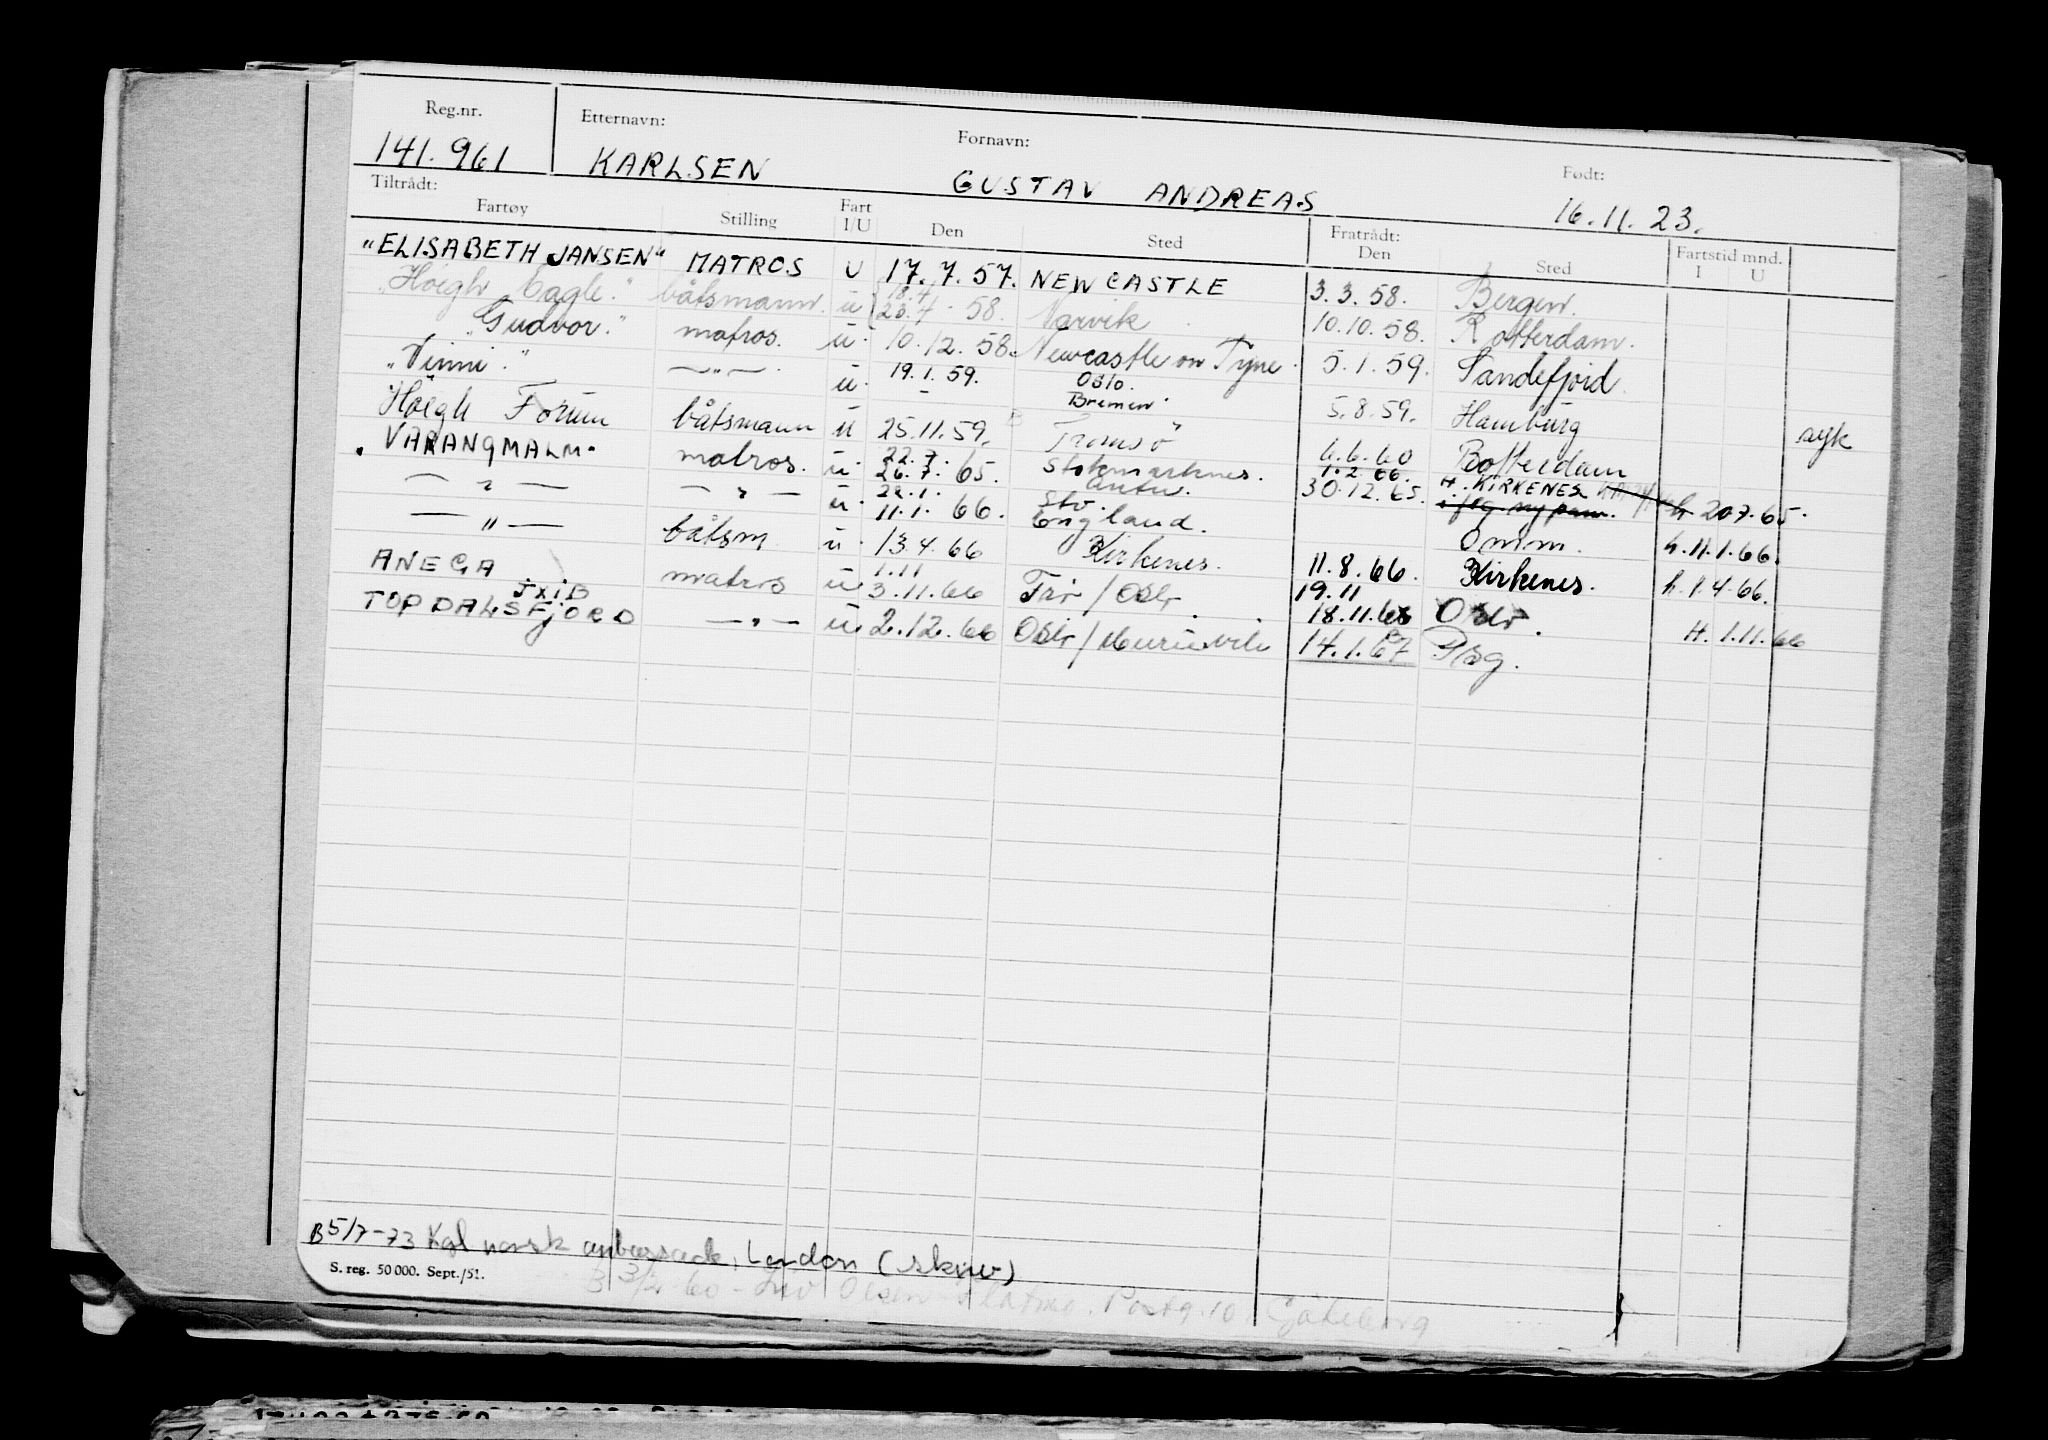 Reg.nr. Etternavn: Fornavn: Født:
141.961 KARLSEN GUSTAV ANDREAS 16.11.23.
Tiltrådt: Fratrådt:
Fartøy Stilling Fart I/U Den Sted Den Sted Fartstid mnd. I U
"ELISABETH JANSEN" MATROS U 17.7.57. NEWCASTLE 3.3.58. Bergen.
"Høegh Eagle." båtsmann. u 18.4 23.4.58. Narvik 10.10.58. Rotterdam.
"Gudvor." matros. u. 10.12.58. Newcastle on Tyne. 5.1.59. Sandefjord.
"Vinni". —"— u. 19.1.59. Oslo. Bremen. 5.8.59. Hamburg syk
Höegh Forum båtsmann u 25.11.59. Tromsö 6.6.60 Rotterdam
"VARANGMALM" matros. u. 22.7. 26.7.65. Stokmarknes. 1.2.66. 30.12.65. H. KIRKENES h 20.7.65.
—"— —"— u. 22.1. 11.1.66. England. Omm. h.11.1.66.
—"— båtsm u. 13.4.66 Kirkenes. 11.8.66. Kirkenes. h.1.4.66.
ANEGA matros u. 1.11 3.11.66 Tår/Oslo. 19.11 18.11.66 Oslo. H. 1.11.66
TOPDALSFJORD —"— u. 2.12.66 Oslo/ 14.1.67 Psg.
B 5/7-73 Kgl norsk ambassade, London (skriv)
S. reg. 50 000. Sept./51.
Olsen Postg. 10 Göteborg